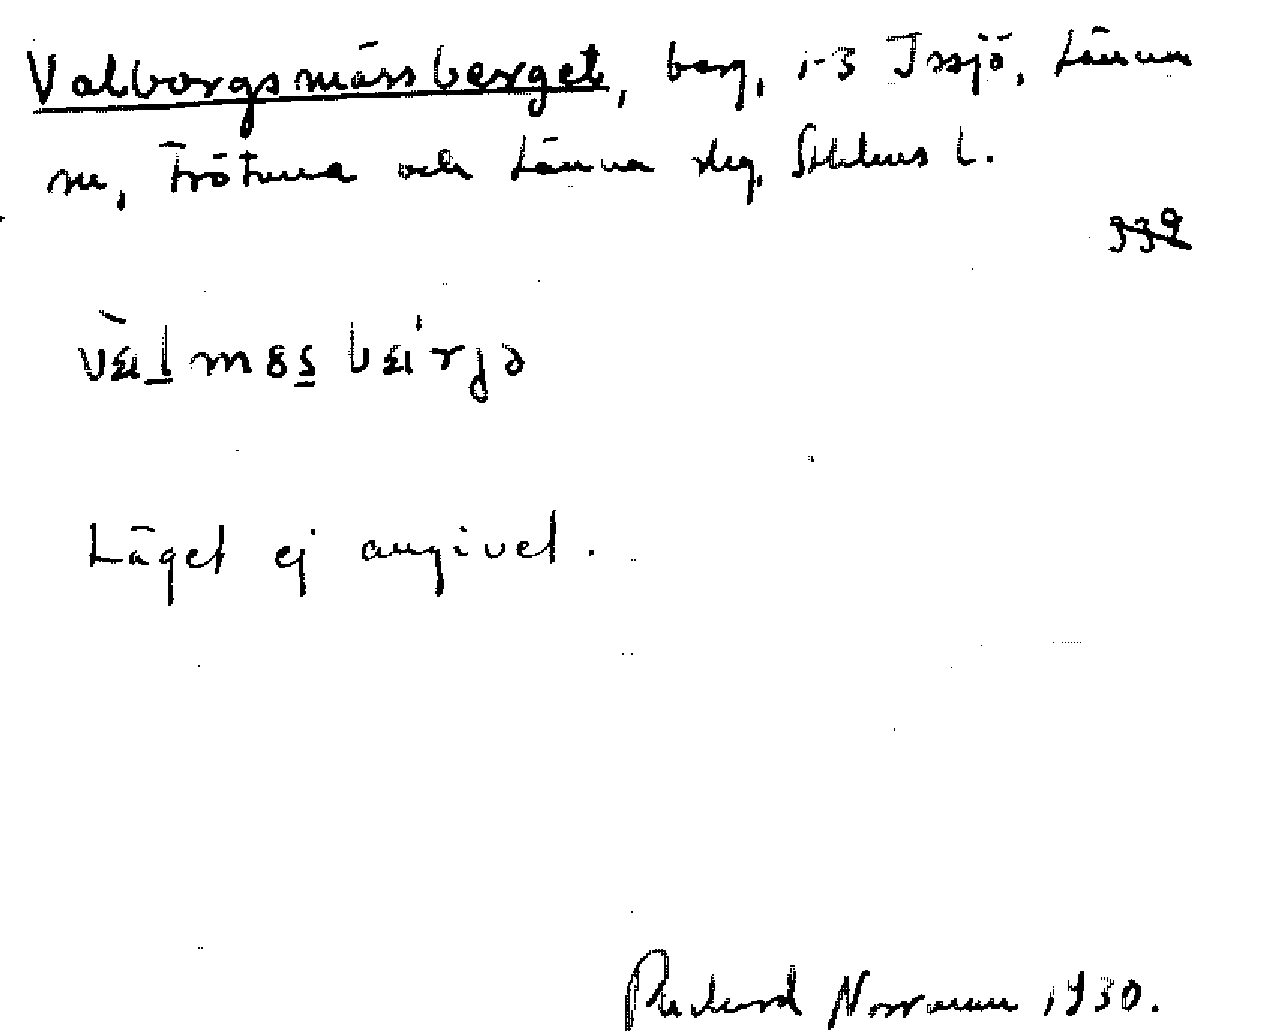 Valborgsmässberget, berg, 1-3 Issjö, Länna
sn, Frötuna och Länna skg, Sthlms l.
339
Läget ej angivet.
Rickard Norrman 1930.